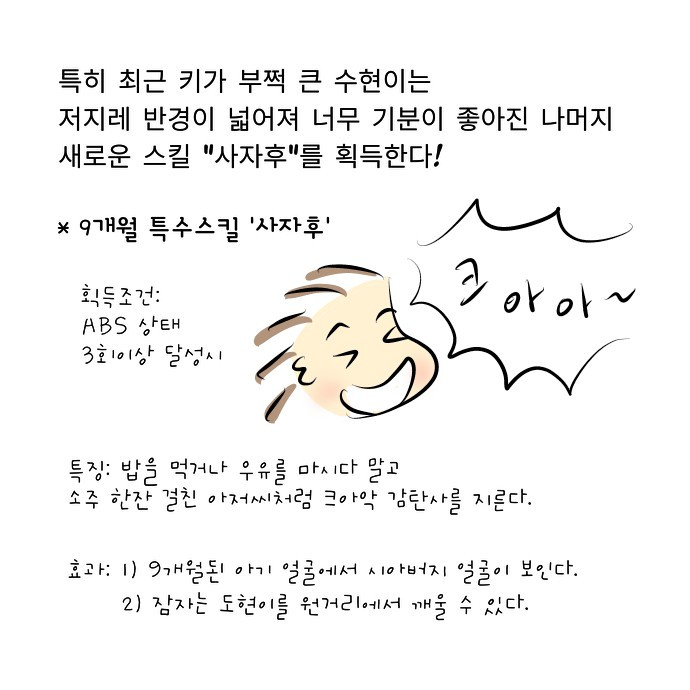 특히 최근 키가 부쩍 큰 수현이는
저지레 반경이 넓어져 너무 기분이 좋아진 나머지
새로운 스킬 "사자후"를 획득한다!
* 9개월 특수스킬 '사자후'
획득조건:
ABS 상태
3회이상 달성시
크아아~
특징: 밥을 먹거나 우유를 마시다 말고
소주 한잔 걸친 아저씨처럼 크아악 감탄사를 지른다.
효과: 1) 9개월된 아기 얼굴에서 시아버지 얼굴이 보인다.
2) 잠자는 도현이를 원거리에서 깨울 수 있다.